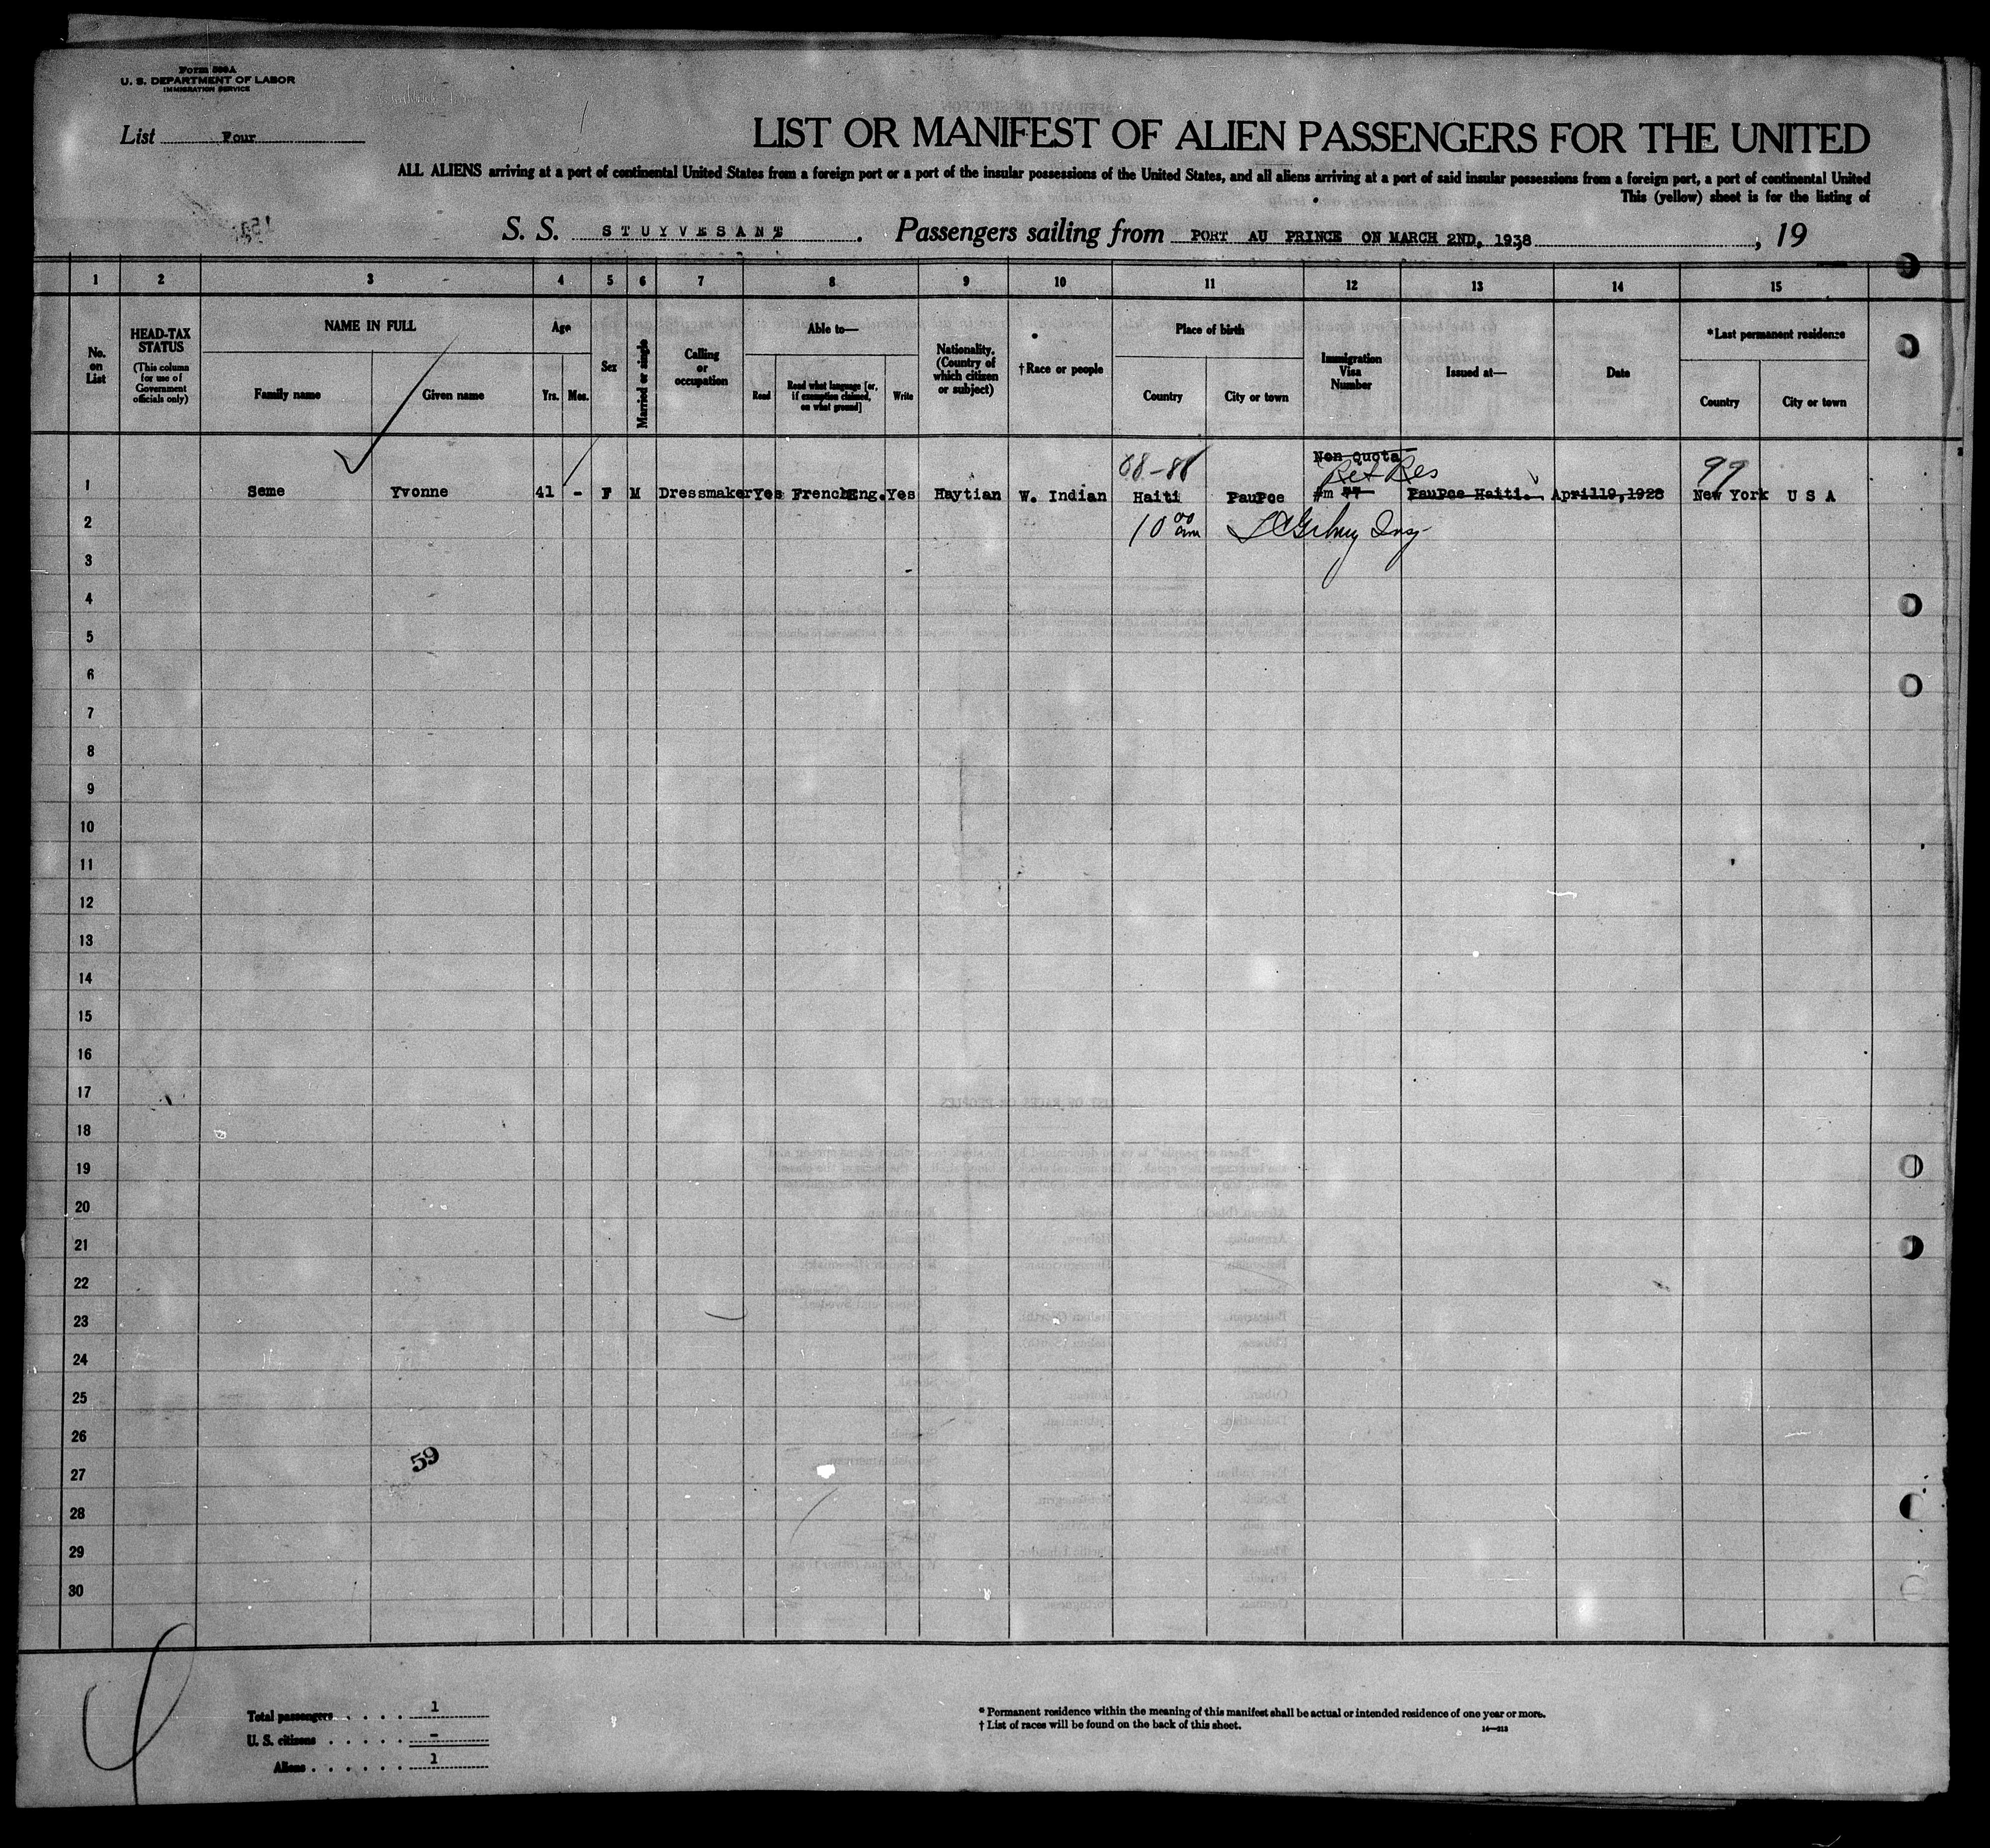 Form 500A
U. S. DEPARTMENT OF LABOR
IMMIGRATION SERVICE
List Four
LIST OR MANIFEST OF ALIEN PASSENGERS FOR THE UNITED
ALL ALIENS arriving at a port of continental United States from a foreign port or a port of the insular possessions of the United States, and all aliens arriving at a port of said insular possessions from a foreign port, a port of continental United
This (yellow) sheet is for the listing of
S. S. STUYVESANT. Passengers sailing from PORT AU PRINCE ON MARCH 2ND, 1938, 19
1 2 3 4 5 6 7 8 9 10 11 12 13 14 15
No. on List
HEAD-TAX STATUS
(This column for use of Government officials only)
NAME IN FULL
Family name
Given name
Age
Yrs.
Mos.
Sex
Married or single
Calling or occupation
Able to—
Read
Read what language [or, if exemption claimed, on what ground]
Write
Nationality. (Country of which citizen or subject)
†Race or people
Place of birth
Country
City or town
Immigration Visa Number
Issued at—
Date
*Last permanent residence
Country
City or town
88-88
Non Quota
Ret Res
99
1 Seme Yvonne 41 - F M Dressmaker Yes French Eng. Yes Haytian W. Indian Haiti PauPce #m 77 PauPce Haiti. April 19, 1928 New York U S A
10 00 am
2
3
4
5
6
7
8
9
10
11
12
13
14
15
16
17
18
19
20
21
22
23
24
25
26
59
27
28
29
30
Total passengers . . . . . 1
U. S. citizens . . . . . -
Aliens . . . . . . 1
* Permanent residence within the meaning of this manifest shall be actual or intended residence of one year or more.
† List of races will be found on the back of this sheet.
14—213